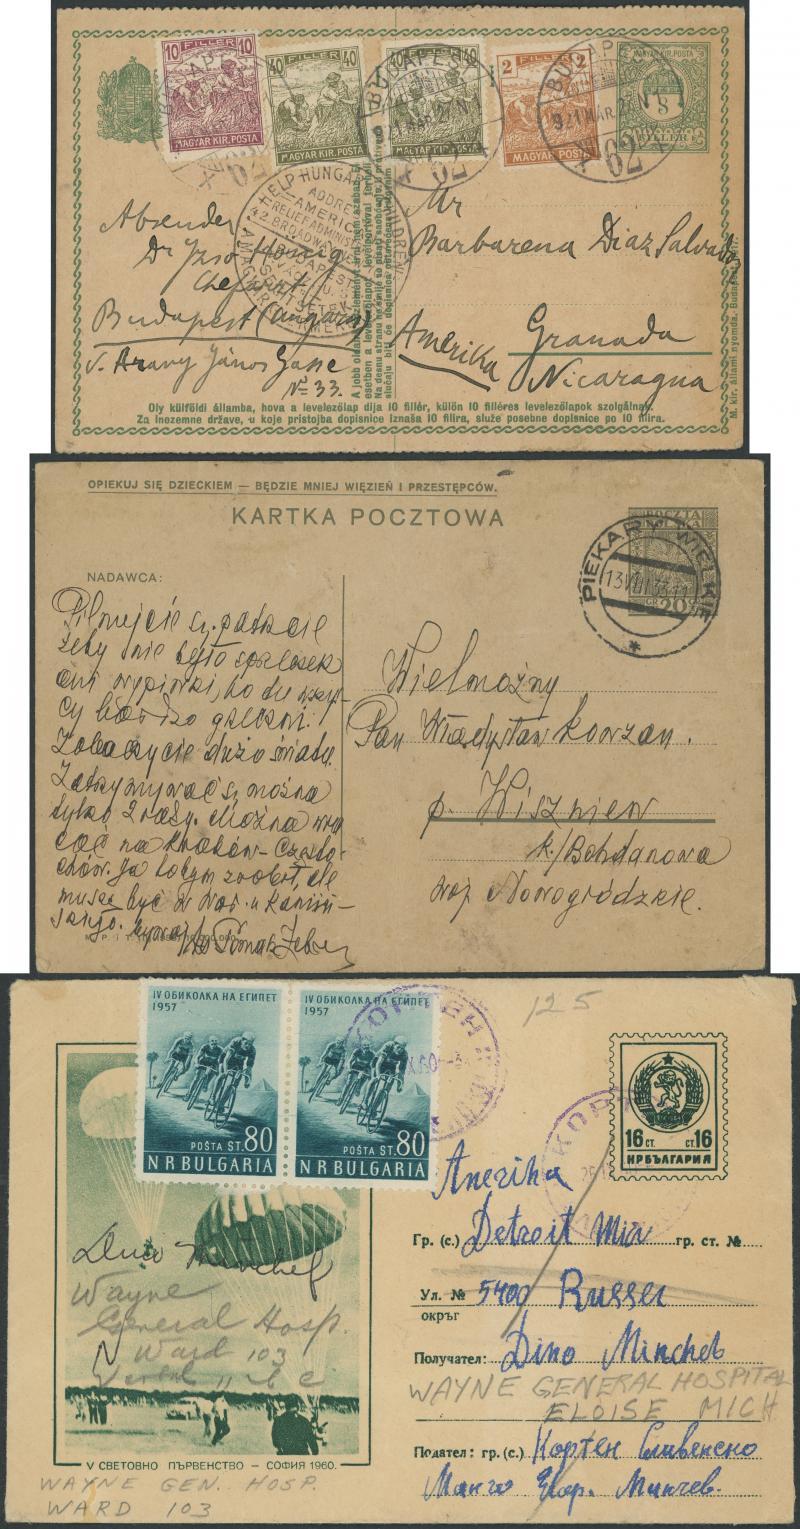 10 FILLÉR 10
MAGYAR KIR. POSTA
40 FILLÉR 40
MAGYAR KIR. POSTA
40 FILLÉR 40
MAGYAR KIR. POSTA
2 FILLÉR 2
MAGYAR KIR. POSTA
MAGYAR KIR. POSTA
8
FILLÉR
BUDAPEST 62
921 MÁR. 27
BUDAPEST 62
921 MÁR. 27
HELP HUNGARIAN CHILDREN
ADDRESS
AMERICAN
RELIEF ADMINIST
42 BROADWAY
BUDAPEST
SEGITSETEK
A MAGYAR GYERMEKEN
Absender
Dr Izsó Hönig
Chefarzt
Budapest (Ungarn)
V. Arany János Gasse
No 33.
Mr
Barbarena Diaz Salvador
Granada
Amerika
Nicaragua
Oly külföldi államba, hova a levelezőlap dija 10 fillér, külön 10 filléres levelezőlapok szolgálnak.
Za inozemne države, u koje pristojba dopisnice iznaša 10 filira, služe posebne dopisnice po 10 filira.
M. kir. állami nyomda. Budapest, 1917.
OPIEKUJ SIĘ DZIECKIEM — BĘDZIE MNIEJ WIĘZIEŃ I PRZESTĘPCÓW.
KARTKA POCZTOWA
POCZTA
POLSKA
GR. 20
PIEKARY WIELKIE
13 VIII 33 11
NADAWCA:
Pilnujcie
żeby nie było
bardzo grzeczni.
Zobaczycie dużo świata.
Zatrzymywać można
tylko 2 razy. Można
na Kraków – Często-
chów. Ja bobym zrobił, ale
muszę być w
Wielmożny
Pan Władysław Kowzan.
p. Wiszniew
k/Bohdanowa
woj. Nowogródzkie.
IV ОБИКОЛКА НА ЕГИПЕТ
1957
POŠTA ST. 80
N R BULGARIA
IV ОБИКОЛКА НА ЕГИПЕТ
1957
POŠTA ST. 80
N R BULGARIA
КОРТЕН
125
16 СТ. СТ. 16
НРБЪЛГАРИЯ
Dino Minchef
Wayne
General Hosp.
Ward 103
V СВЕТОВНО ПЪРВЕНСТВО – СОФИЯ 1960.
WAYNE GEN. HOSP.
WARD 103
Америка
Гр. (с.) Detroit Mich гр. ст. №
Ул. № 5400 Russel
окръг
Получател: Dino Mincheb
WAYNE GENERAL HOSPITAL
ELOISE MICH
Подател: гр. (с.) Кортен Сливенско
Манчо Егор. Минчев.